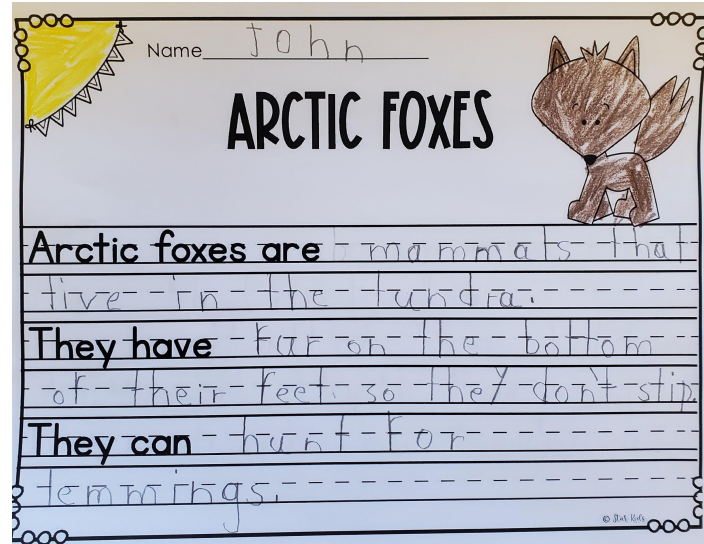 Name John
ARCTIC FOXES
Arctic foxes are mammals that
live in the tundra.
They have fur on the bottom
of their feet. so they don't slip.
They can hunt for
lemmings.
© Star Kids